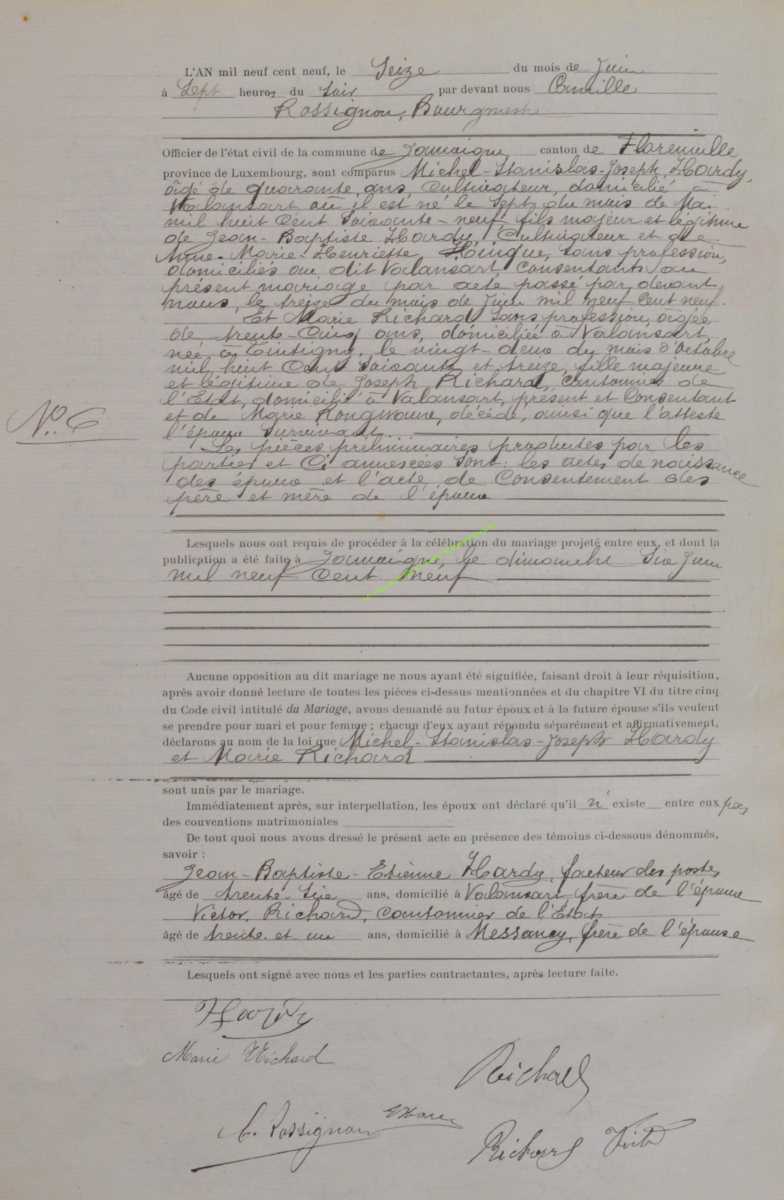 L'AN mil neuf cent neuf, le Seize du mois de Juin
à Sept heures du Soir par devant nous Camille
Rossignon, Bourgmestre
Officier de l'état civil de la commune de Jamoigne canton de Florenville
province de Luxembourg, sont comparus Michel-Stanislas-Joseph Hardy,
âgé de quarante ans, Cultivateur, domicilié à
Valansart où il est né le Sept du mois de Mai
mil huit Cent Soixante-neuf, fils majeur et légitime
de Jean-Baptiste Hardy, Cultivateur et de
Anne-Marie-Henriette, sans profession,
domiciliés au dit Valansart, Consentants au
présent mariage par acte passé par devant
nous, le treize du mois de Juin mil neuf Cent neuf.
Et Marie Richard Sans profession, âgée
de trente-Cinq ans, domiciliée à Valansart,
née à Tintigny, le vingt-deux du mois d'Octobre
mil huit Cent Soixante et treize, fille majeure
et légitime de Joseph Richard, Cantonnier de
l'Etat, domicilié à Valansart, présent et Consentant
et de Marie, décédée, ainsi que l'atteste
l'époux Survivant.
N° 6
Les pièces préliminaires produites par les
parties et Ci annexées Sont: les actes de naissance
des époux et l'acte de Consentement des
père et mère de l'époux
Lesquels nous ont requis de procéder à la célébration du mariage projeté entre eux, et dont la
publication a été faite à Jamoigne, le dimanche Six Juin
mil neuf Cent neuf
Aucune opposition au dit mariage ne nous ayant été signifiée, faisant droit à leur réquisition,
après avoir donné lecture de toutes les pièces ci-dessus mentionnées et du chapitre VI du titre cinq
du Code civil intitulé du Mariage, avons demandé au futur époux et à la future épouse s'ils veulent
se prendre pour mari et pour femme ; chacun d'eux ayant répondu séparément et affirmativement,
déclarons au nom de la loi que Michel-Stanislas-Joseph Hardy
et Marie Richard
sont unis par le mariage.
Immédiatement après, sur interpellation, les époux ont déclaré qu'il n' existe entre eux pas
des conventions matrimoniales
De tout quoi nous avons dressé le présent acte en présence des témoins ci-dessous dénommés,
savoir :
Jean-Baptiste-Etienne Hardy, facteur des postes
âgé de trente-Six ans, domicilié à Valansart, frère de l'époux
Victor Richard, Cantonnier de l'Etat
âgé de trente et un ans, domicilié à Messancy, frère de l'épouse
Lesquels ont signé avec nous et les parties contractantes, après lecture faite.
Hardy
Marie Richard
Richard
C. Rossignon
Richard